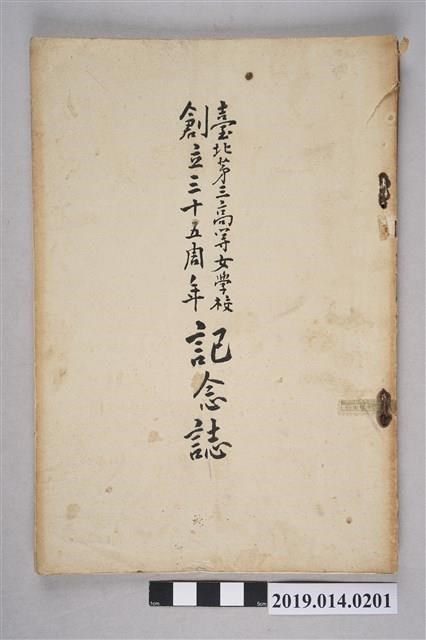 臺北第三高等女學校
創立三十五周年記念誌
1cm
5cm
2019.014.0201